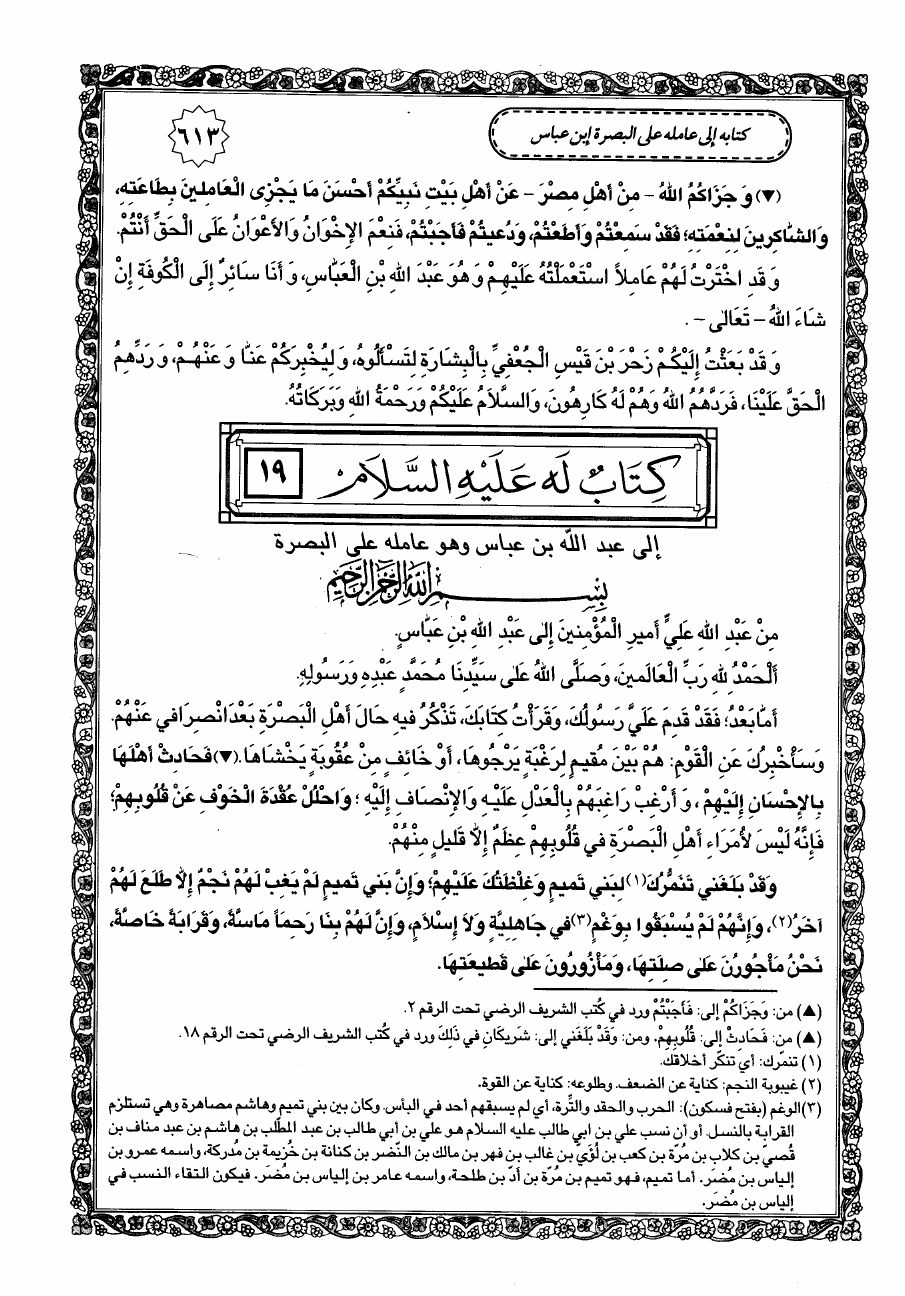 كتابه إلى عامله على البصرة إبن عباس
٦١٣
(▼) وَ جَزَاكُمُ اللهُ – مِنْ أَهْلِ مِصْرَ – عَنْ أَهْلِ بَيْتِ نَبِيِّكُمْ أَحْسَنَ مَا يَجْزِى الْعَامِلينَ بِطَاعَتِهِ،
وَالشَّاكِرينَ لِنِعْمَتِهِ؛ فَقَدْ سَمِعْتُمْ وَأَطَعْتُمْ، وَدُعيتُمْ فَأَجَبْتُمْ، فَنِعْمَ الإِخْوَانُ وَالأَعْوَانُ عَلَى الْحَقِّ أَنْتُمْ.
وَ قَدِ اخْتَرْتُ لَهُمْ عَامِلاً اسْتَعْمَلْتُهُ عَلَيْهِمْ وَ هُوَ عَبْدَ اللهِ بْنِ الْعَبَّاسِ، وَ أَنَا سَائِرٌ إِلَى الْكُوفَةِ إِنْ
شَاءَ اللهُ – تَعَالى – .
وَ قَدْ بَعَثْتُ إِلَيْكُمْ زَحْرَ بْنَ قَيْسٍ الْجُعْفِيِّ بِالْبِشَارَةِ لِتَسْأَلُوهُ، وَ لِيُخْبِرَكُمْ عَنَّا وَ عَنْهُمْ، وَ رَدِّهِمُ
الْحَقَّ عَلَيْنَا، فَرَدَّهُمُ اللهُ وَهُمْ لَهُ كَارِهُونَ، وَالسَّلاَمُ عَلَيْكُمْ وَرَحْمَةُ اللهِ وَبَرَكَاتُهُ.
كِتَابٌ لَه عَلَيْهِ السَّلاَم
١٩
إلى عبد اللّه بن عباس وهو عامله على البصرة
بِسْمِ اللهِ الرَّحْمٰنِ الرَّحيمِ
مِنْ عَبْدِ اللهِ عَلِيٍّ أَميرِ الْمُؤْمِنينَ إِلى عَبْدِ اللهِ بْنِ عَبَّاسٍ.
أَلْحَمْدُ لِلهِ رَبِّ الْعَالَمينَ، وَصَلَّى اللهُ عَلى سَيِّدِنَا مُحَمَّدٍ عَبْدِهِ وَرَسُولِهِ.
أَمَّا بَعْدُ؛ فَقَدْ قَدِمَ عَلَيَّ رَسُولُكَ، وَقَرَأْتُ كِتَابَكَ، تَذْكُرُ فيهِ حَالَ أَهْلِ الْبَصْرَةِ بَعْدَ انْصِرَافي عَنْهُمْ.
وَسَأُخْبِرُكَ عَنِ الْقَوْمِ: هُمْ بَيْنَ مُقيمٍ لِرَغْبَةٍ يَرْجُوهَا، أَوْ خَائِفٍ مِنْ عُقُوبَةٍ يَخْشَاهَا. (▼) فَحَادِثْ أَهْلَهَا
بِالإِحْسَانِ إِلَيْهِمْ، وَ أَرْغِبْ رَاغِبَهُمْ بِالْعَدْلِ عَلَيْهِ وَالإِنْصَافِ إِلَيْهِ؛ وَاحْلُلْ عُقْدَةَ الْخَوْفِ عَنْ قُلُوبِهِمْ؛
فَإِنَّهُ لَيْسَ لأُمَرَاءِ أَهْلِ الْبَصْرَةِ في قُلُوبِهِمْ عِظَمٌ إِلاَّ قَليلٍ مِنْهُمْ.
وَقَدْ بَلَغَني تَنَمُّرُكَ(١) لِبَني تَميمٍ وَغِلْظَتُكَ عَلَيْهِمْ؛ وَإِنَّ بَني تَميمٍ لَمْ يَغِبْ لَهُمْ نَجْمٌ إِلاَّ طَلَعَ لَهُمْ
آخَرُ(٢)، وَإِنَّهُمْ لَمْ يُسْبَقُوا بِوَغْمٍ(٣) في جَاهِلِيَّةٍ وَلاَ إِسْلاَمٍ، وَإِنَّ لَهُمْ بِنَا رَحِماً مَاسَّةً، وَقَرَابَةً خَاصَّةً،
نَحْنُ مَأْجُورُنَ عَلى صِلَتِهَا، وَمَأْزُورُونَ عَلى قَطيعَتِهَا.
(▲) من: وَجَزَاكُمْ إلى: فَأَجَبْتُمْ ورد في كُتب الشريف الرضي تحت الرقم ٢.
(▲) من: فَحَادِثْ إلى: قُلُوبِهِمْ. ومن: وَقَدْ بَلَغَني إلى: شَريكَانِ في ذَلِكَ ورد في كُتب الشريف الرضي تحت الرقم ١٨.
(١) تنمّرك: أي تنكّر أخلاقك.
(٢) غيبوبة النجم: كناية عن الضعف. وطلوعه: كناية عن القوة.
(٣) الوغم (بفتح فسكون): الحرب والحقد والتِّرة، أي لم يسبقهم أحد في البأس. وكان بين بني تميم وهاشم مصاهرة وهي تستلزم
القرابة بالنسل. أو أن نسب علي بن ابي طالب عليه السلام هو علي بن أبي طالب بن عبد المطّلب بن هاشم بن عبد مناف بن
قُصي بن كلاب بن مُرّة بن كعب بن لُؤَي بن غالب بن فهر بن مالك بن النّضر بن كنانة بن خُزيمة بن مُدركة، واسمه عمرو بن
إلياس بن مُضَر. أما تميم، فهو تميم بن مُرّة بن أدّ بن طلحة، واسمه عامر بن إلياس بن مُضَر. فيكون التقاء النسب في
إلياس بن مُضَر.